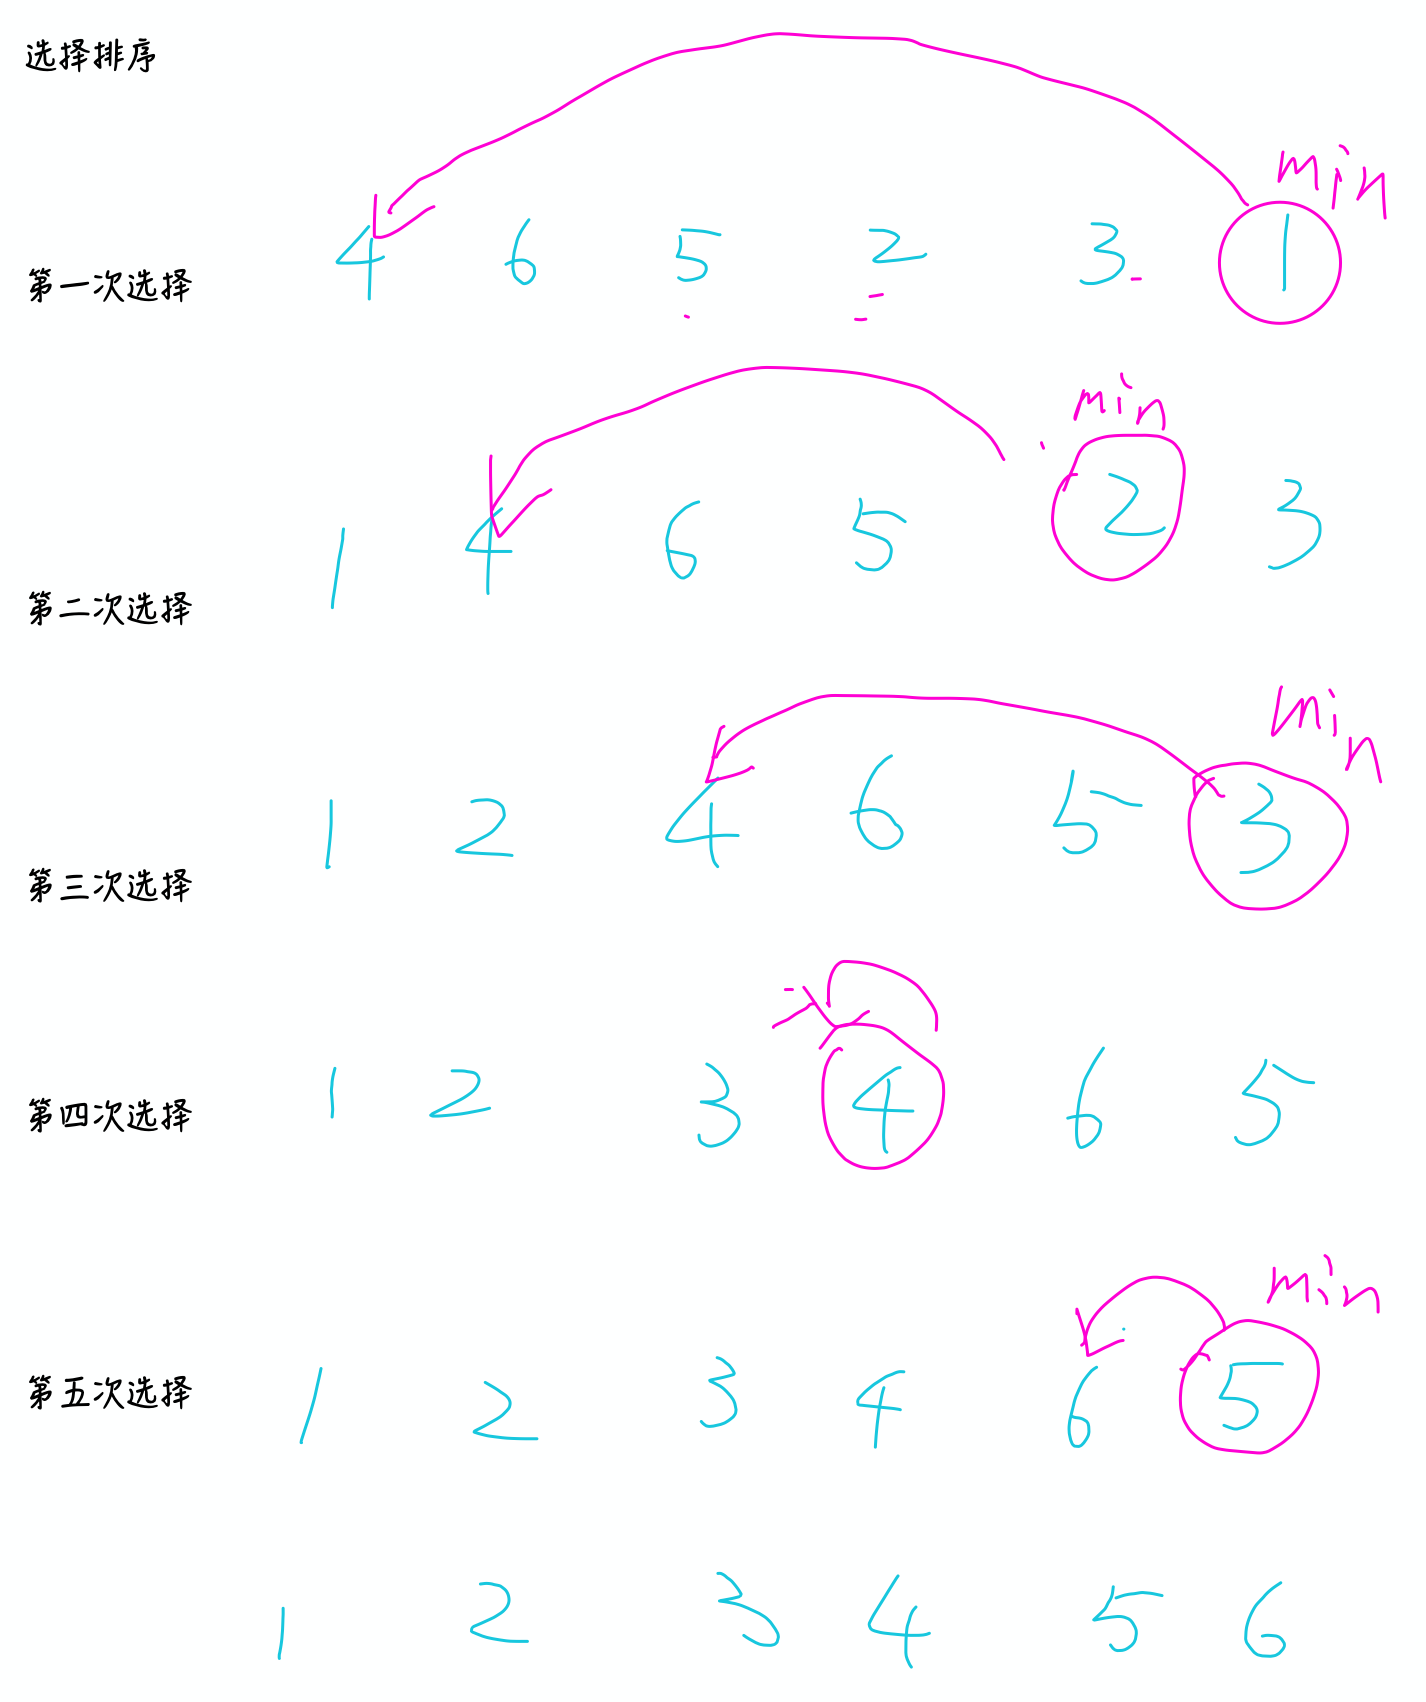 选择排序
min
第一次选择 4 6 5 2 3 1
min
第二次选择 1 4 6 5 2 3
min
第三次选择 1 2 4 6 5 3
第四次选择 1 2 3 4 6 5
min
第五次选择 1 2 3 4 6 5
1 2 3 4 5 6